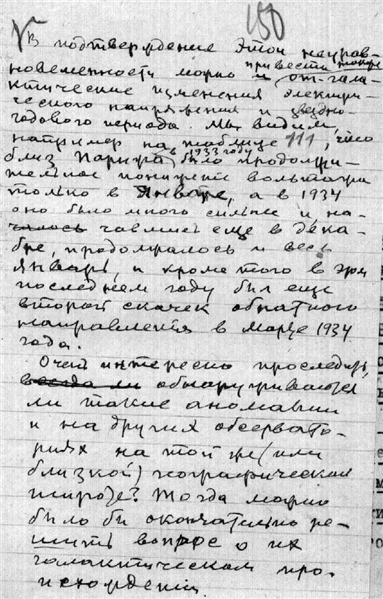 150
В подтверждение этой неурав-
привести также
новешенности можно и от-гала-
ктические изменения электри-
ческого напряжения и звездно-
годового периода. Мы видим,
например на таблице 111, что
в 1933 году
близ Парижа было продолжи-
тельное понижение вольтажа
только в Январе, а в 1934
оно было много сильнее и на-
чалось еще в дека-
бре, продолжалось и весь
Январь, и кроме того в этом
последнем году был еще
второй скачек обратного
направления в Марте 1934
года.
Очень интересно проследить,
всегда ли обнаруживаются
ли такие аномалии
и на других обсервато-
риях на той же (или
близкой) географической
широте? Тогда можно
было бы окончательно ре-
шить вопрос о их
галактическом про-
исхождении.